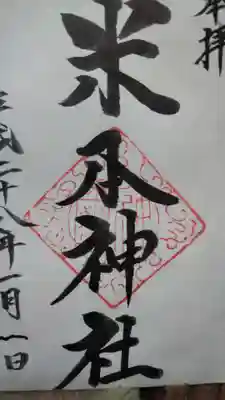 奉拝
米本神社
平成二十八年一月八日